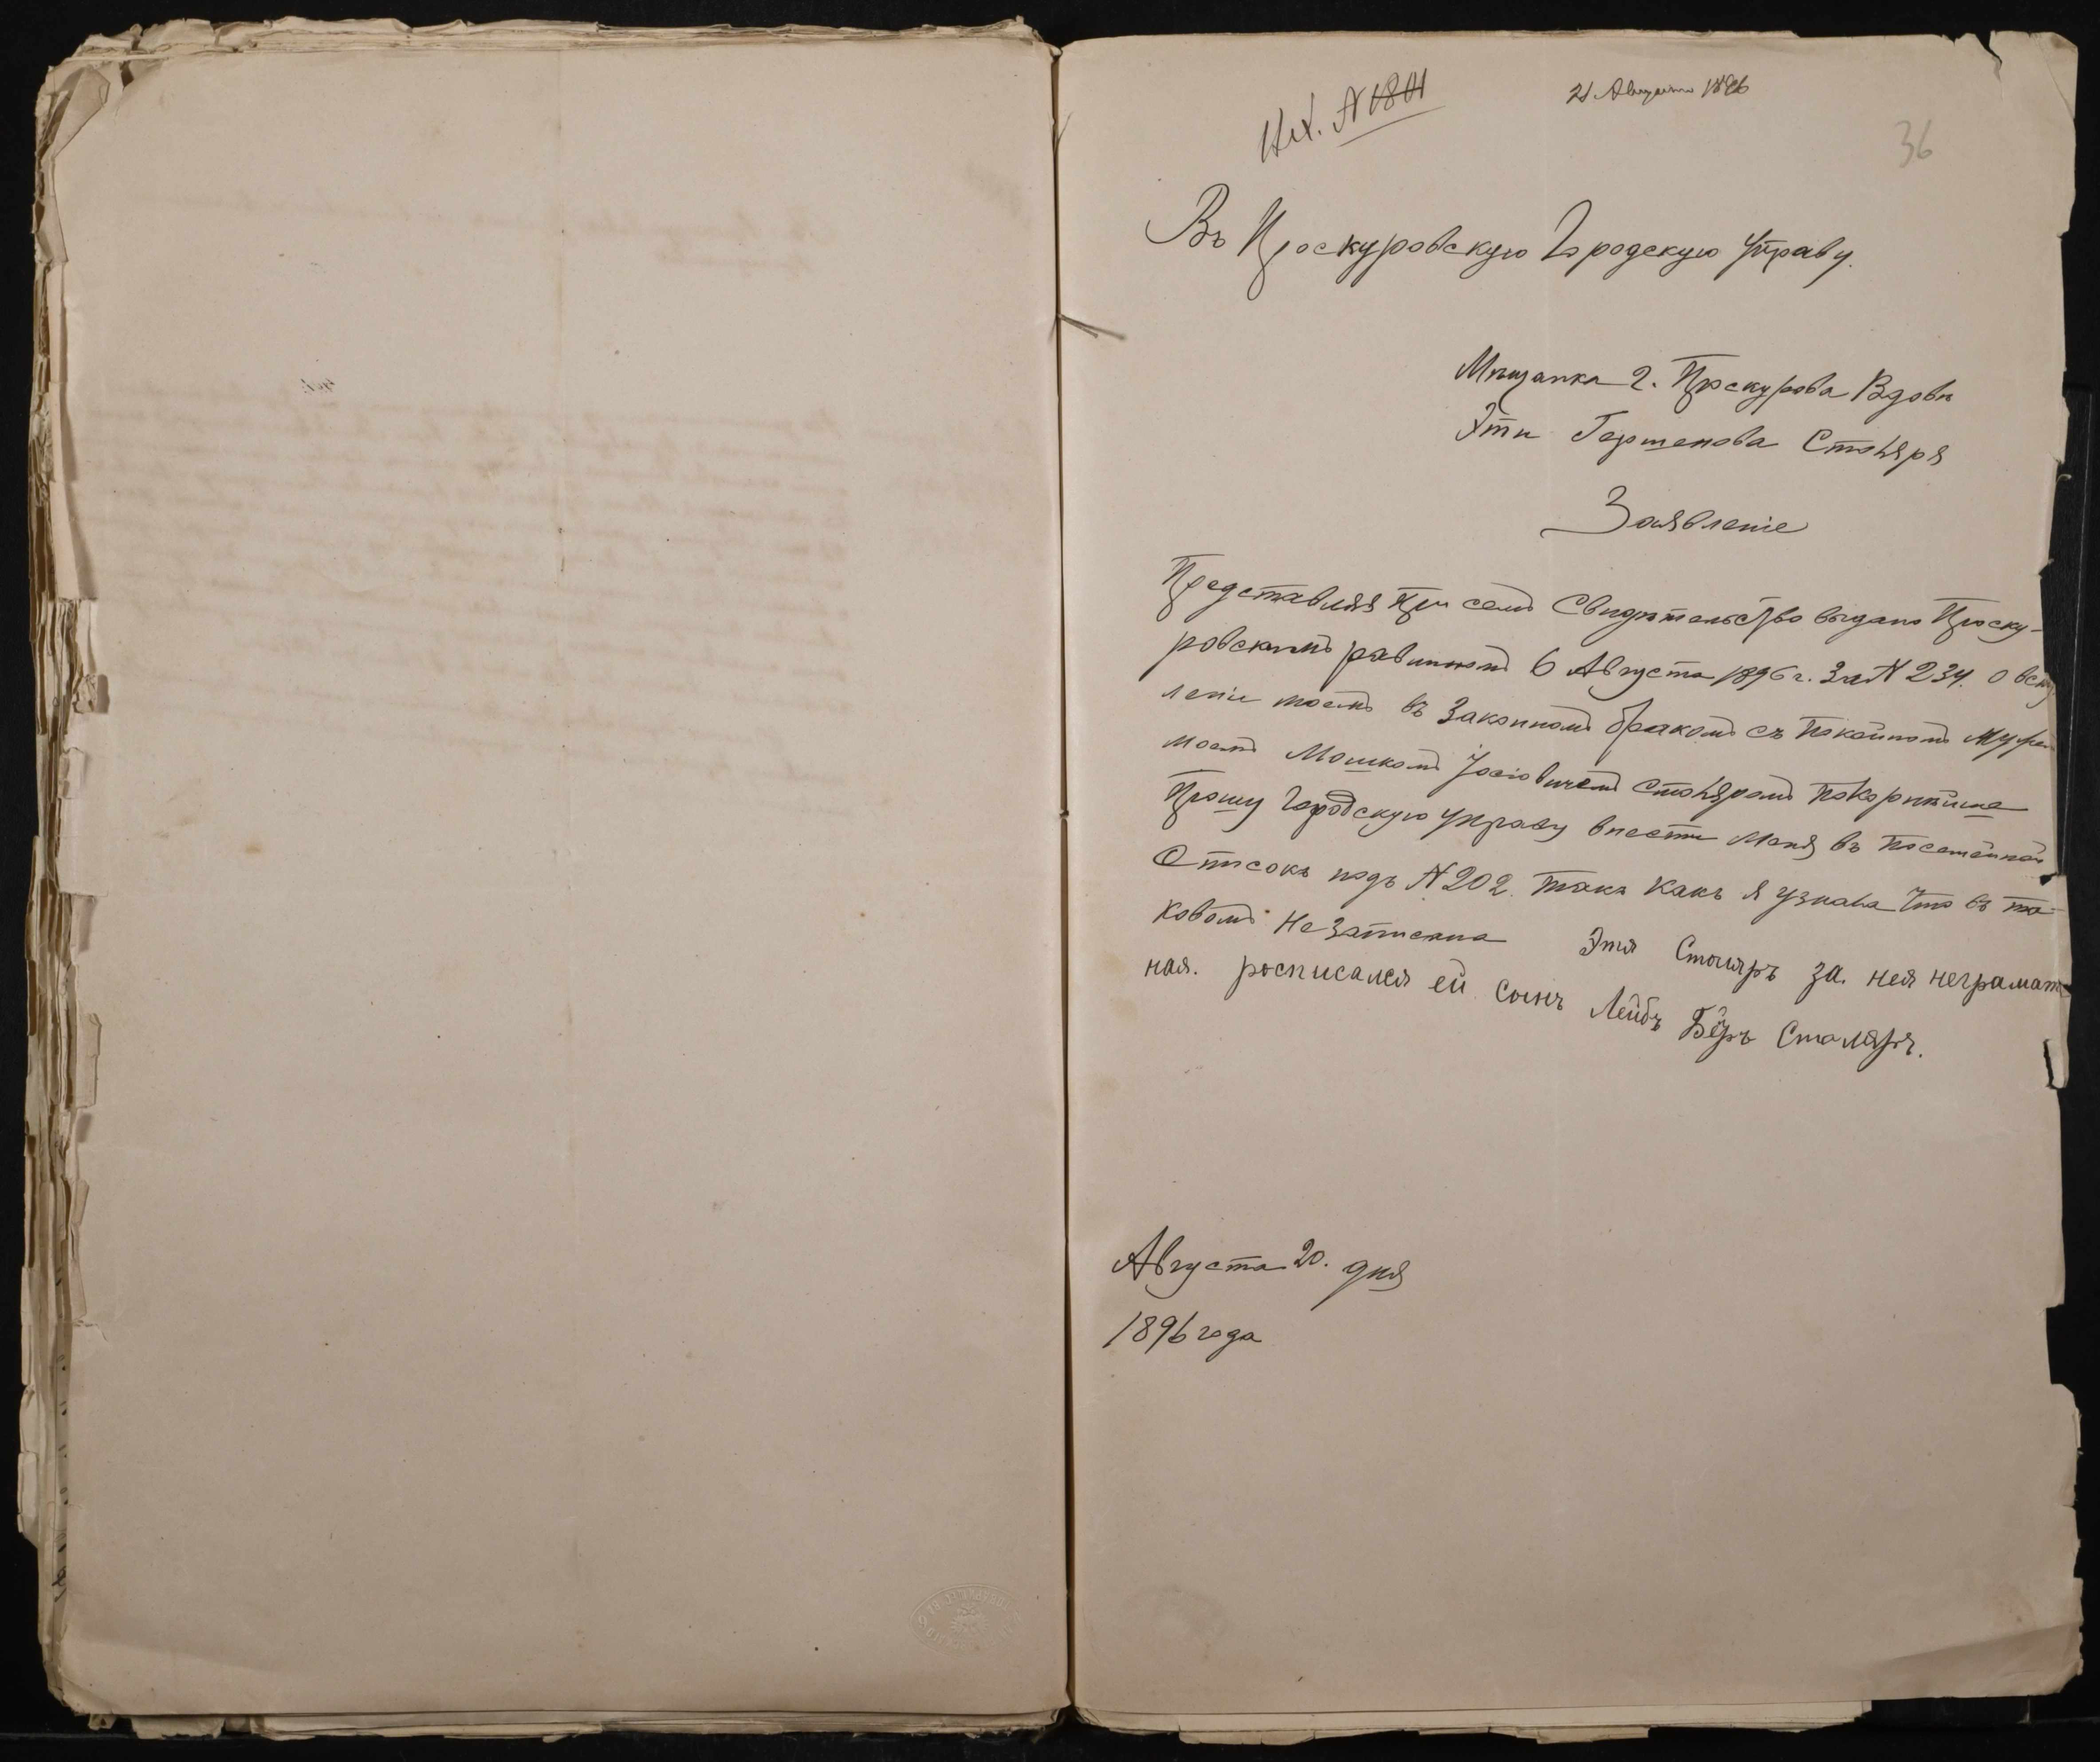 Вх. N 1801
21 Августа 1896
36
Въ Проскуровскую Городскую Управу.
Мѣщанка г. Проскурова Вдовы
Эти Гершенова Столяря
Заявленіе
Представляя при семъ Свидѣтельство выдано Проску-
ровскимъ равиномъ 6 Августа 1896 г. За N 234. О всту
леніи моемъ въ Законномъ бракомъ съ покойномъ муже
моемъ Мошкомъ Іосіовичемъ Столяромъ покорнѣйше
Прошу Городскую Управу внести меня въ посемейной
Списокъ подъ N 202. такъ какъ я узнала что въ та-
ковомъ не записана Этя Столяръ за. нея неграмат-
ная. росписался ей сынъ Лейбъ Беръ Столяръ.
Августа 20. дня
1896 года